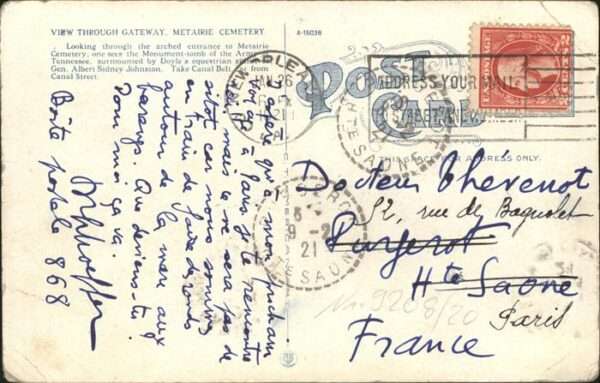 VIEW THROUGH GATEWAY, METAIRIE CEMETERY
A-15038
Looking through the arched entrance to Metairie
Cemetery, one sees the Monument-tomb of the Army
Tennessee, surmounted by Doyle's equestrian
Gen. Albert Sidney Johnson. Take Canal Belt car from
Canal Street.
POST CARD
ADDRESS YOUR MAIL
STREET
FOR ADDRESS ONLY.
JAN 26
1921
9-2
21
Hte SAONE
J'espère qu'à mon prochain
voyage à Paris je te rencontre
mais ce ne sera pas de
sitôt car nous sommes
en train de faire des ronds
autour de la mare aux
harengs. Que deviens-tu?
Pour moi ça va.
Boîte postale 868
Docteur Thévenot
52, rue de Bagnolet
Purgerot
Hte Saône
Paris
France
9208/20